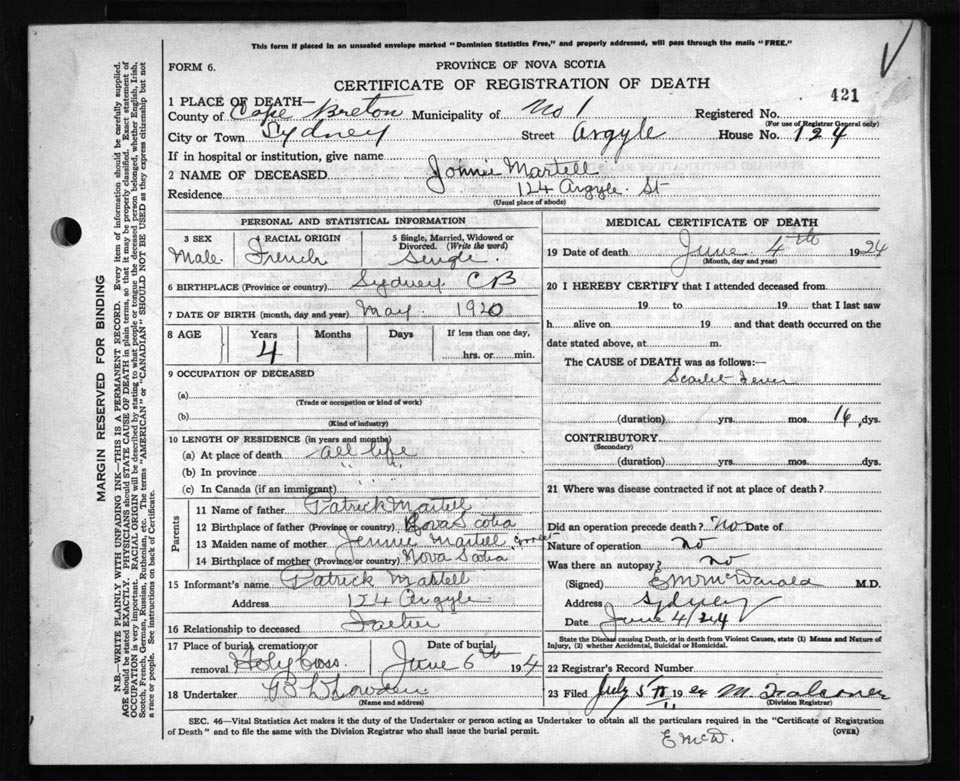 This form if placed in an unsealed envelope marked "Dominion Statistics Free," and properly addressed, will pass through the mails "FREE."
FORM 6.
PROVINCE OF NOVA SCOTIA
CERTIFICATE OF REGISTRATION OF DEATH
421
1 PLACE OF DEATH—
County of Cape Breton Municipality of No 1 Registered No.
(For use of Registrar General only)
City or Town Sydney Street Argyle House No. 124
If in hospital or institution, give name
2 NAME OF DECEASED Johnie Martell
Residence 124 Argyle St
(Usual place of abode)
PERSONAL AND STATISTICAL INFORMATION
3 SEX Male
4 RACIAL ORIGIN French
5 Single, Married, Widowed or Divorced. (Write the word) Single
6 BIRTHPLACE (Province or country) Sydney CB
7 DATE OF BIRTH (month, day and year) May 1920
8 AGE Years Months Days If less than one day,
4 hrs. or min.
9 OCCUPATION OF DECEASED
(a)
(Trade or occupation or kind of work)
(b)
(Kind of industry)
10 LENGTH OF RESIDENCE (in years and months)
(a) At place of death all life
(b) In province " "
(c) In Canada (if an immigrant)
Parents
11 Name of father Patrick Martell
12 Birthplace of father (Province or country) Nova Scotia
13 Maiden name of mother Jennie Martell correct
14 Birthplace of mother (Province or country) Nova Scotia
15 Informant's name Patrick Martell
Address 124 Argyle
16 Relationship to deceased Father
17 Place of burial, cremation or removal Holy Cross
Date of burial June 6th 1924
18 Undertaker
(Name and address)
MEDICAL CERTIFICATE OF DEATH
19 Date of death June 4th 1924
(Month, day and year)
20 I HEREBY CERTIFY that I attended deceased from
19 to 19 that I last saw
h alive on 19 and that death occurred on the
date stated above, at m.
The CAUSE of DEATH was as follows:—
Scarlet Fever
(duration) yrs. mos. 16 dys.
CONTRIBUTORY
(Secondary)
(duration) yrs. mos. dys.
21 Where was disease contracted if not at place of death?
Did an operation precede death? No Date of
Nature of operation No
Was there an autopsy? No
(Signed) E M McDonald M.D.
Address Sydney
Date June 4/24
State the Disease causing Death, or in death from Violent Causes, state (1) Means and Nature of Injury, (2) whether Accidental, Suicidal or Homicidal.
22 Registrar's Record Number
23 Filed July 5 1924 M. Falconer
(Division Registrar)
SEC. 46—Vital Statistics Act makes it the duty of the Undertaker or person acting as Undertaker to obtain all the particulars required in the "Certificate of Registration
of Death" and to file the same with the Division Registrar who shall issue the burial permit.
(OVER)
E McD.
MARGIN RESERVED FOR BINDING
N.B.—WRITE PLAINLY WITH UNFADING INK—THIS IS A PERMANENT RECORD. Every item of information should be carefully supplied.
AGE should be stated EXACTLY. PHYSICIANS should STATE CAUSE OF DEATH in plain terms, so that it may be properly classified. Exact statement of
OCCUPATION is very important. RACIAL ORIGIN will be described by stating to what people or tongue the deceased person belonged, whether English, Irish,
Scotch, French, German, Russian, Ruthenian, etc. The terms "AMERICAN" or "CANADIAN" SHOULD NOT BE USED as they express citizenship but not
a race or people. See instructions on back of Certificate.